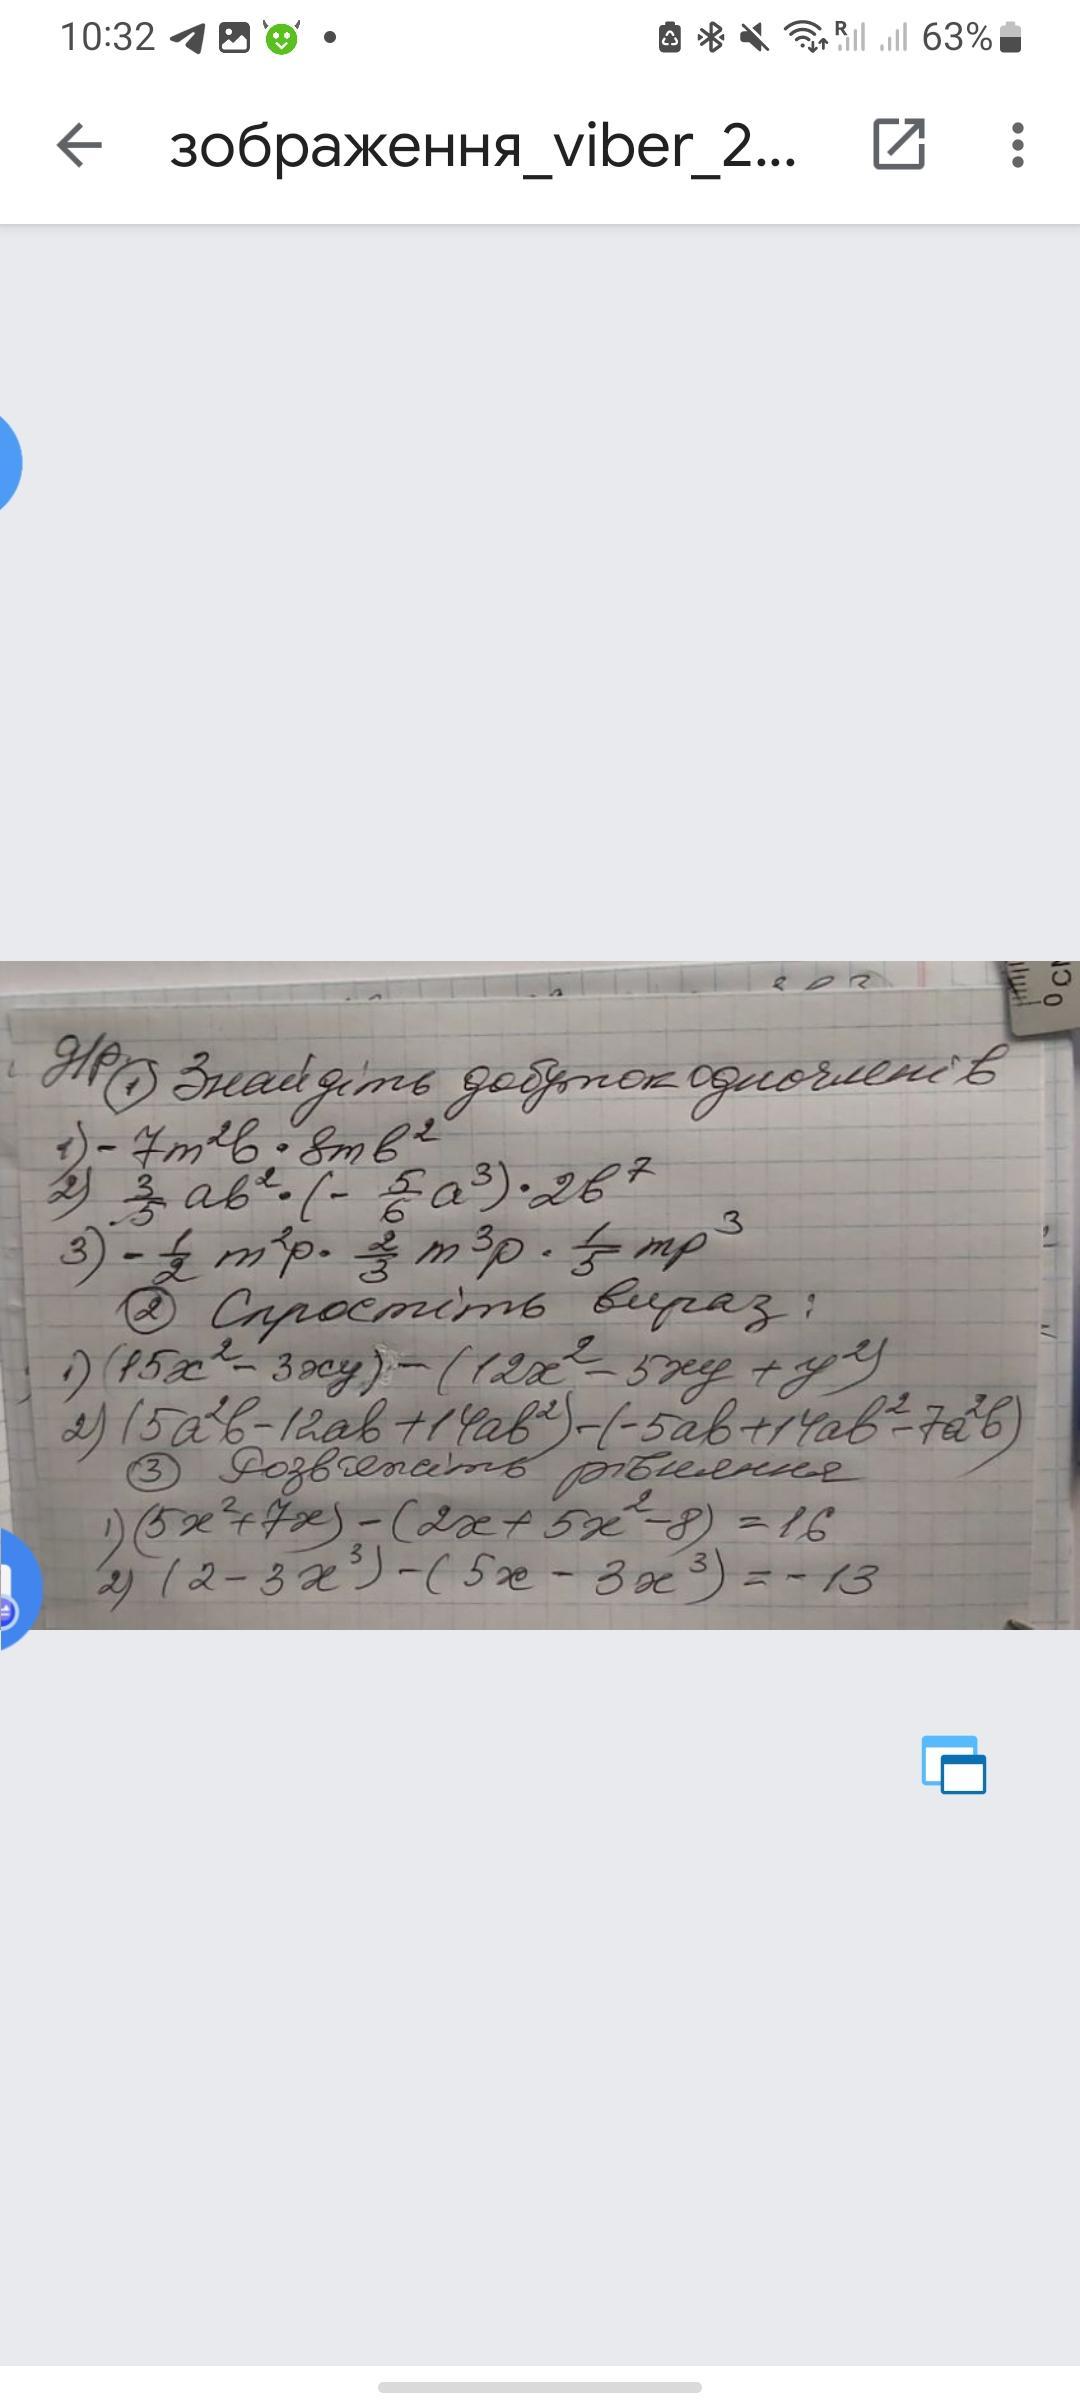 10:32 63%
зображення_viber_2...
0 см
Д/р ① Знайдіть добуток одночленів
1) - 7m²b · 8mb²
2) 3/5 ab² · (- 5/6 a³) · 2b⁷
3) - 1/2 m²p · 2/3 m³p · 1/5 mp³
② Спростіть вираз:
1) (15x² - 3xy) - (12x² - 5xy + y²)
2) (5a²b - 12ab + 14ab²) - (-5ab + 14ab² - 7a²b)
③ Розв'яжіть рівняння
1) (5x² + 7x) - (2x + 5x² - 8) = 16
2) (2 - 3x³) - (5x - 3x³) = - 13